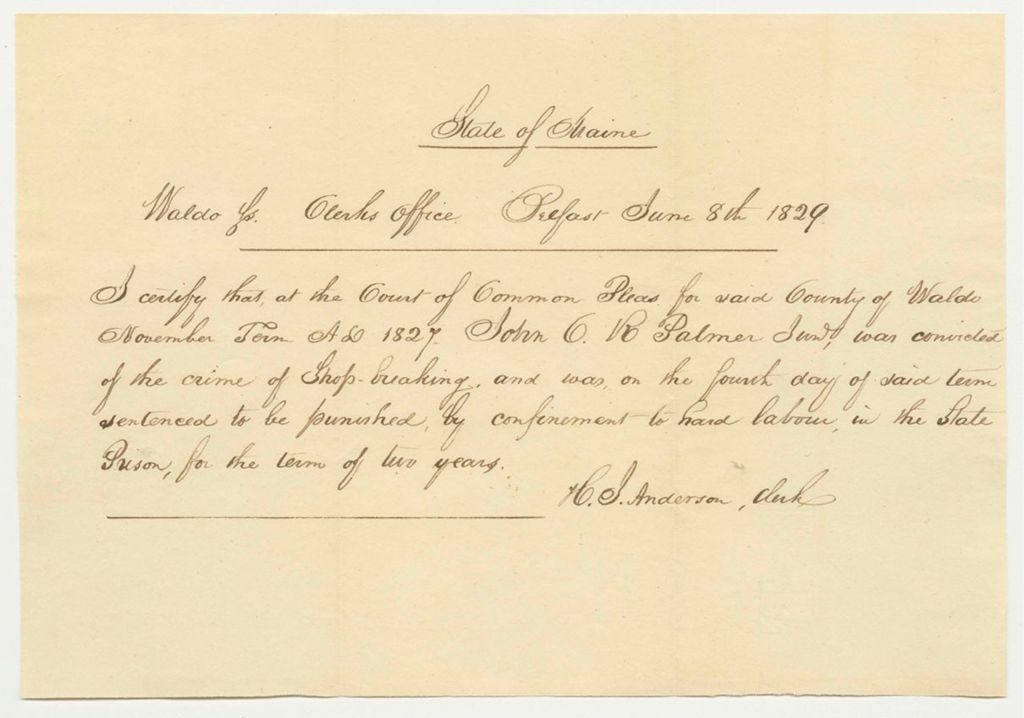 State of Maine
Waldo ss. Clerks Office. Belfast June 8th 1829.
I certify that, at the Court of Common Pleas, for said County of Waldo
November Term A D 1827. John C. R Palmer Junr, was convicted
of the crime of Shop-breaking, and was, on the fourth day of said term
sentenced to be punished, by confinement to hard labour, in the State
Prison, for the term of two years.
H. J. Anderson, clerk